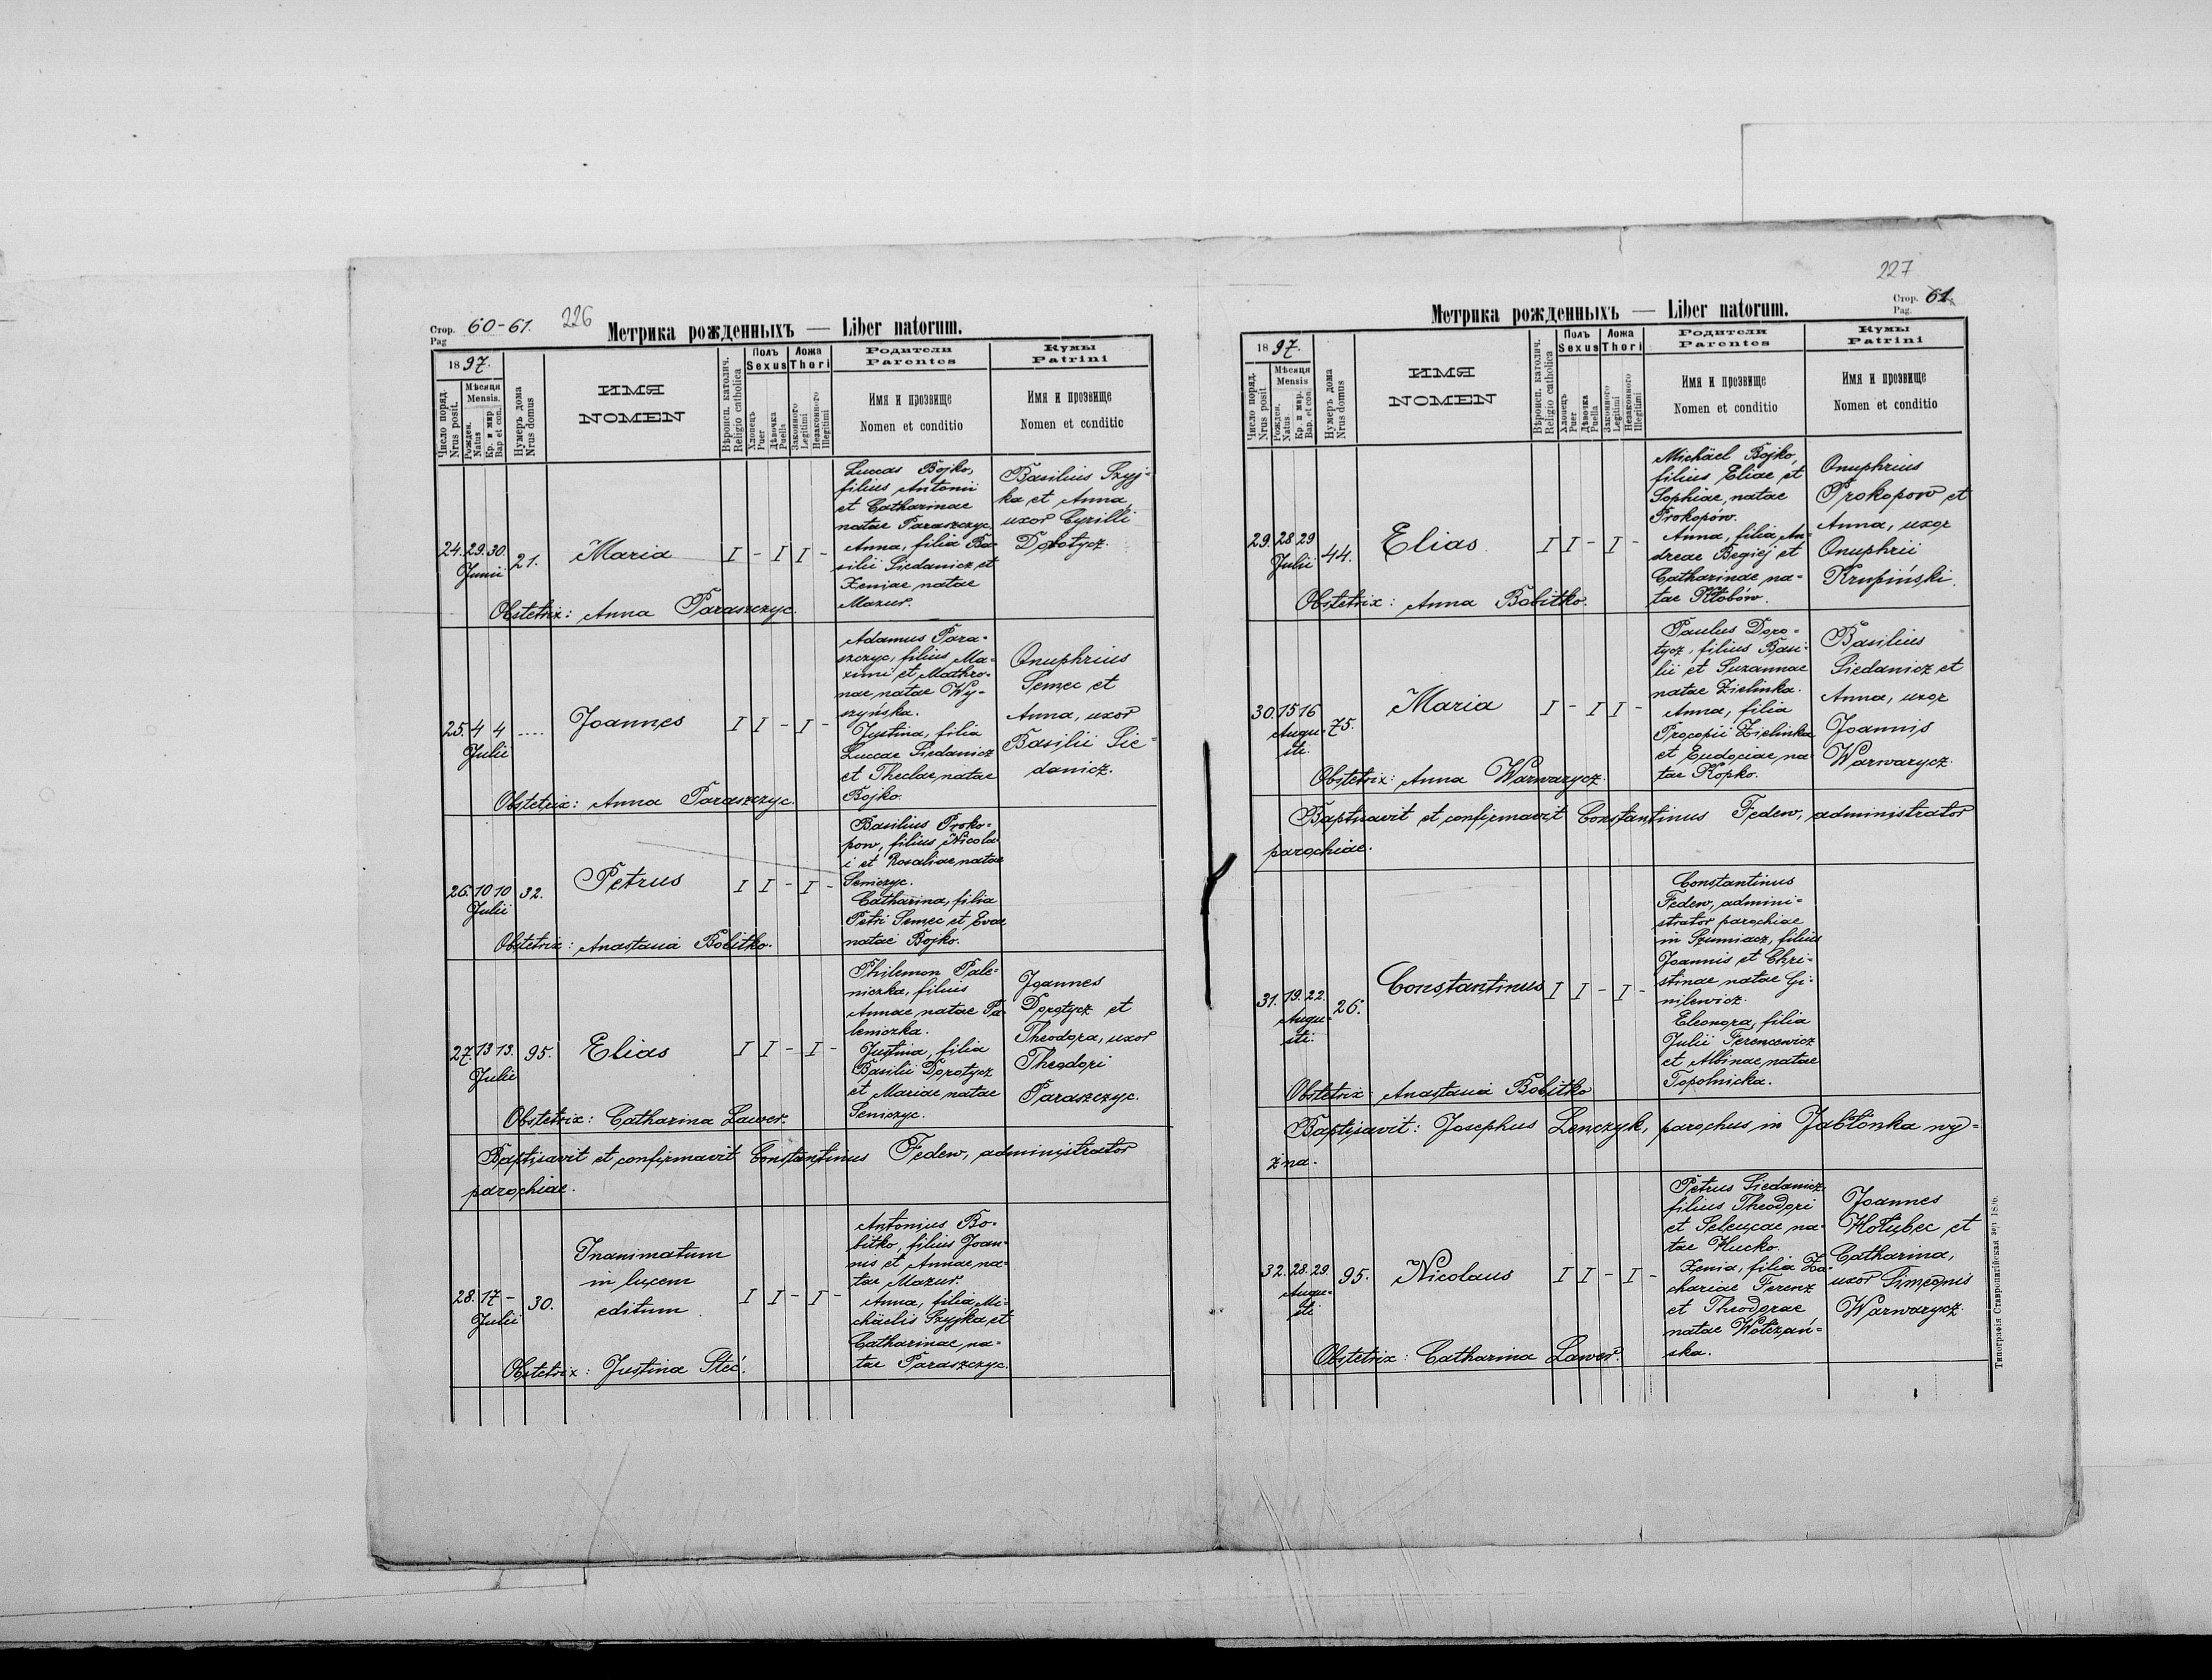 Стор. 60-61. 226
Pag
Метрика рожденныхъ — Liber natorum.
1897.
Мѣсяця
Mensis.
Число поряд.
Nrus posit.
Рожден.
Natus
Кр. и мѵр.
Bap et con.
Нумеръ дома
Nrus domus
ИМЯ
NOMEN
Вѣроисп. католич.
Religio catholica
Полъ
Sexus
Хлопецъ
Puer
Дѣвочка
Puella
Ложа
Thori
Законного
Legitimi
Незаконного
Illegitimi
Родители
Parentes
Имя и прозвище
Nomen et conditio
Кумы
Patrini
Имя и прозвище
Nomen et conditio
24. 29. 30.
Junii
21.
Maria
I - I I -
Luccas Bojko,
filius Antonii
et Catharinae
natae Paraszczyc.
Anna, filia Ba-
silii Siedanicz et
Xeniae natae
Mazur.
Basilius Szyj-
ka et Anna,
uxor Cyrilli
Dorotycz.
Obstetrix: Anna Paraszczyc.
25. 4 4
Julii
....
Joannes
I I - I -
Adamus Para-
szczyc, filius Ma-
ximi et Mathro-
nae natae Wy-
szyńska.
Justina, filia
Luccae Siedanicz
et Theclae, natae
Bojko.
Onuphrius
Semec et
Anna, uxor
Basilii Sie-
danicz.
Obstetrix: Anna Paraszczyc.
26. 10 10
Julii
32.
Petrus
I I - I -
Basilius Proko-
pow, filius Nicola-
i et Rosaliae, natae
Seniczyc.
Catharina, filia
Petri Semec et Evae
natae Bojko.
Obstetrix: Anastasia Bobitko.
27. 13 13.
Julii
95.
Elias
I I - I -
Philemon Pale-
niczka, filius
Annae natae Pa-
leniczka.
Justina, filia
Basilii Dorotycz
et Mariae natae
Seniczyc.
Joannes
Dorotycz et
Theodora, uxor
Theodori
Paraszczyc.
Obstetrix: Catharina Lawer.
Baptisavit et confirmavit Constantinus Fedew, administrator
parochiae.
28. 17 -
Julii
30.
Inanimatum
in lucem
editum.
I I - I -
Antonius Bo-
bitko, filius Joan-
nis et Annae na-
tae Mazur.
Anna, filia Mi-
chäelis Szyjka et
Catharinae na-
tae Paraszczyc.
Obstetrix: Justina Steć.
227
Метрика рожденныхъ — Liber natorum.
Стор. 61.
Pag.
1897.
Мѣсяця
Mensis
Число поряд.
Nrus posit
Рожден.
Natus.
Кр. и мѵр.
Bap. et con.
Нумеръ дома
Nrus domus
ИМЯ
NOMEN
Вѣроисп. католич.
Religio catholica
Полъ
Sexus
Хлопецъ
Puer
Дѣвочка
Puella
Ложа
Thori
Законного
Legitimi
Незаконного
Illegitimi.
Родители
Parentes
Имя и прозвище
Nomen et conditio
Кумы
Patrini
Имя и прозвище
Nomen et conditio
29. 28 29
Julii
44.
Elias.
I I - I -
Michäel Bojko,
filius Eliae et
Sophiae, natae
Prokopów.
Anna, filia An-
dreae Begiej et
Catharinae na-
tae Kłobów.
Onuphrius
Prokopow et
Anna, uxor
Onuphrii
Krupiński.
Obstetrix: Anna Bobitko.
30. 15 16
Augu-
sti.
75.
Maria
I - I I -
Paulus Doro-
tycz, filius Basi-
lii et Suzannae
natae Zielinka.
Anna, filia
Procopii Zielinka
et Eudociae na-
tae Kopko.
Basilius
Siedanicz et
Anna, uxor
Joannis
Warwarycz.
Obstetrix: Anna Warwarycz.
Baptisavit et confirmavit Constantinus Fedew, administrator
parochiae.
31. 19. 22.
Augu-
sti.
26.
Constantinus
I I - I -
Constantinus
Fedew, admini-
strator parochiae
in Szumiacz, filius
Joannis et Chri-
stinae natae Gi-
nilewicz.
Eleonora, filia
Julii Ferencewicz
et Albinae, natae
Topolnicka.
Obstetrix: Anastasia Bobitko
Baptisavit: Josephus Lenczyk, parochus in Jabłonka wy-
żna.
32. 28. 29.
Augu-
sti
95.
Nicolaus
I I - I -
Petrus Siedanicz,
filius Theodori
et Seleucae na-
tae Hucko.
Xenia, filia Za-
chariae Ferenz
et Theodorae
natae Wołczań-
ska.
Joannes
Hołubec et
Catharina,
uxor Simeonis
Warwarycz.
Obstetrix: Catharina Lawer.
Типографія Ставропигійская